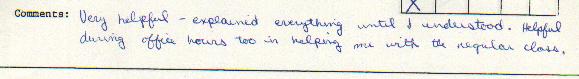 Comments: Very helpful - explained everything until I understood. Helpful
during office hours too in helping me with the regular class.